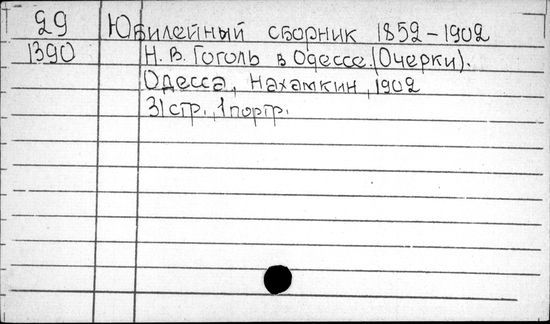 29 Юбилейный сборник 1852-1902
1390 Н. В. Гоголь в Одессе. (Очерки).
Одесса, Нахамкин, 1902
31стр., 1портр.